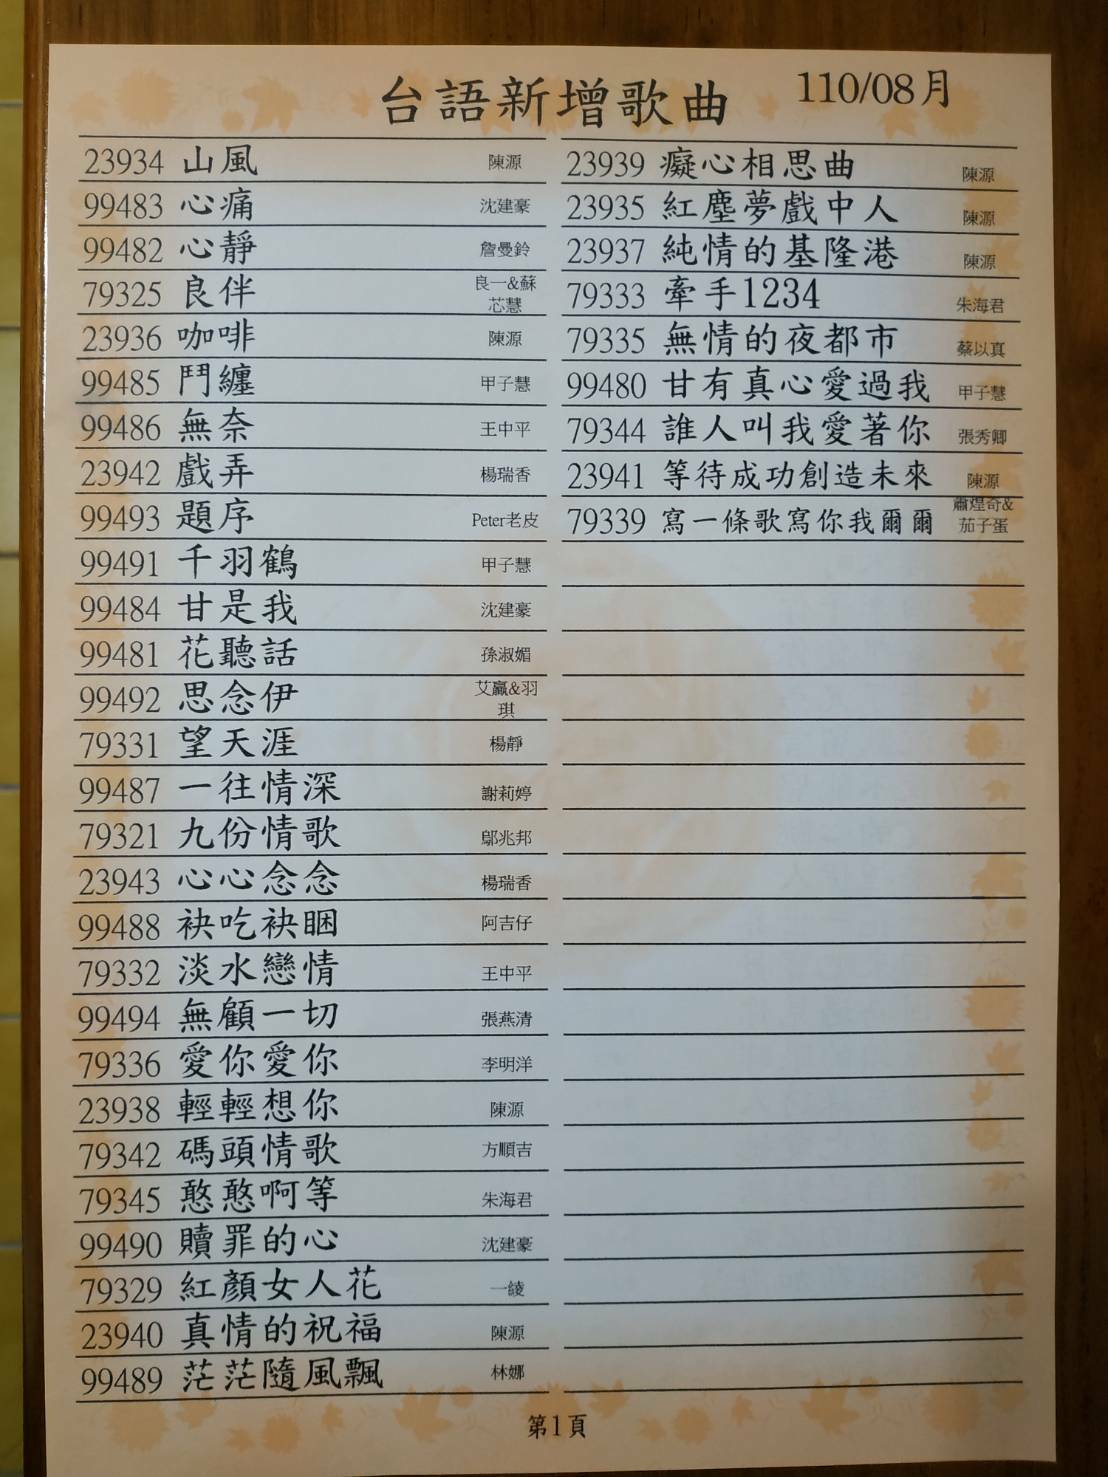 台語新增歌曲 110/08月
23934 山風 陳源
99483 心痛 沈建豪
99482 心靜 詹曼鈴
79325 良伴 良一&蘇芯慧
23936 咖啡 陳源
99485 鬥纏 甲子慧
99486 無奈 王中平
23942 戲弄 楊瑞香
99493 題序 Peter老皮
99491 千羽鶴 甲子慧
99484 甘是我 沈建豪
99481 花聽話 孫淑媚
99492 思念伊 艾贏&羽琪
79331 望天涯 楊靜
99487 一往情深 謝莉婷
79321 九份情歌 鄔兆邦
23943 心心念念 楊瑞香
99488 袂吃袂睏 阿吉仔
79332 淡水戀情 王中平
99494 無顧一切 張燕清
79336 愛你愛你 李明洋
23938 輕輕想你 陳源
79342 碼頭情歌 方順吉
79345 憨憨啊等 朱海君
99490 贖罪的心 沈建豪
79329 紅顏女人花 一綾
23940 真情的祝福 陳源
99489 茫茫隨風飄 林娜
23939 癡心相思曲 陳源
23935 紅塵夢戲中人 陳源
23937 純情的基隆港 陳源
79333 牽手1234 朱海君
79335 無情的夜都市 蔡以真
99480 甘有真心愛過我 甲子慧
79344 誰人叫我愛著你 張秀卿
23941 等待成功創造未來 陳源
79339 寫一條歌寫你我爾爾 蕭煌奇&茄子蛋
第1頁